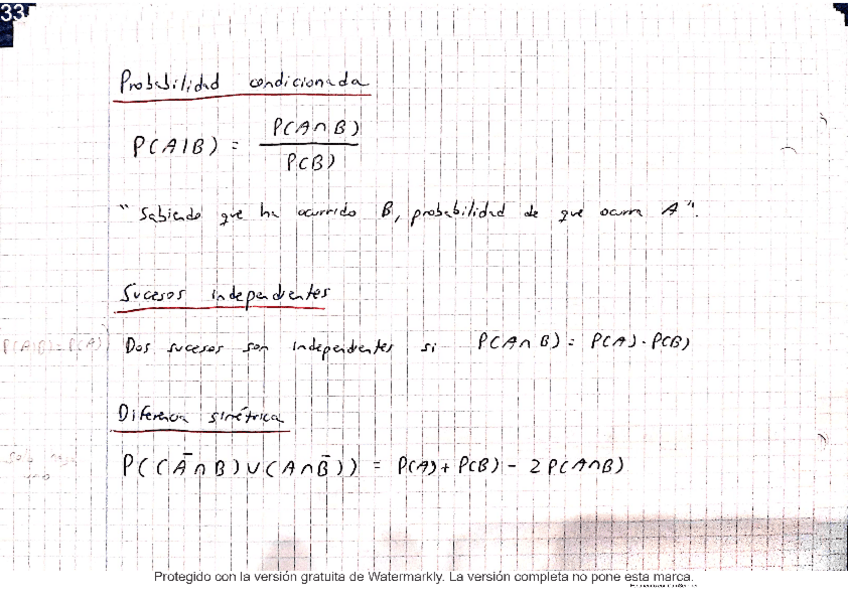 33
Probabilidad condicionada
P(A|B) = P(A∩B) / P(B)
"Sabiendo que ha ocurrido B, probabilidad de que ocurra A".
Sucesos independientes
P(A|B)=P(A) Dos sucesos son independientes si P(A∩B) = P(A)·P(B)
Diferencia simétrica
P((Ā∩B)∪(A∩B̄)) = P(A)+P(B) - 2P(A∩B)
Protegido con la versión gratuita de Watermarkly. La versión completa no pone esta marca.